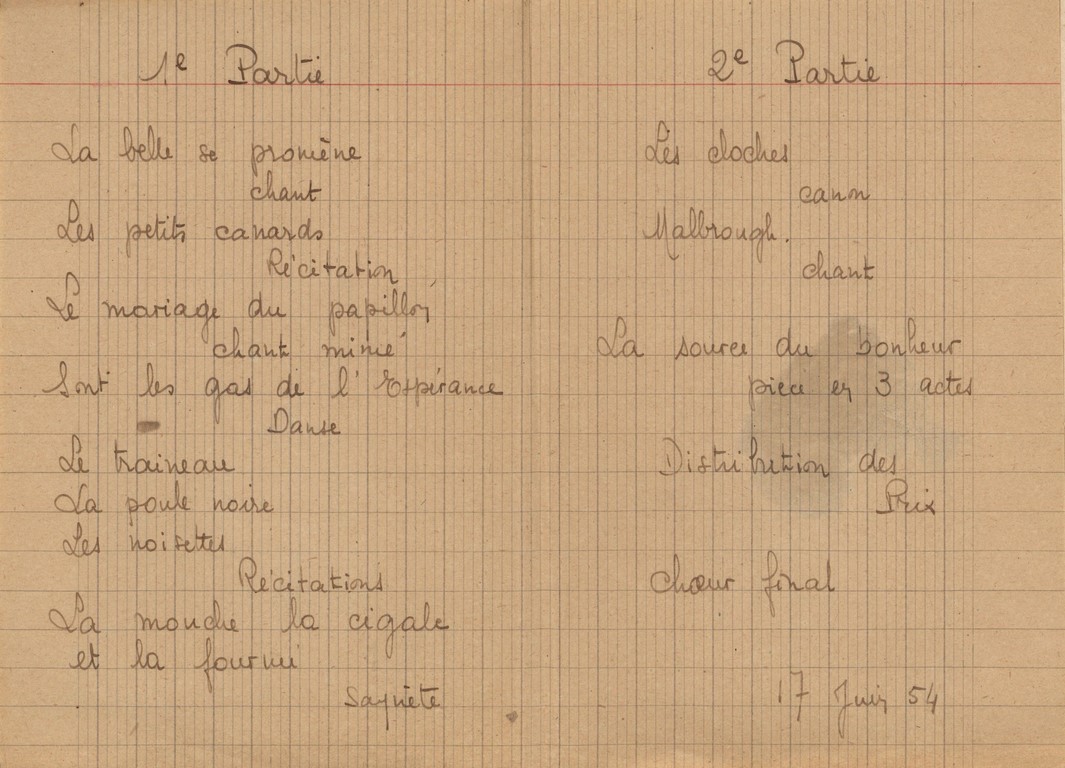 1e Partie
La belle se promène
chant
Les petits canards
Récitation
Le mariage du papillon
chant mimé
Sont les gas de l'Espérance
Danse
Le traineau
La poule noire
Les noisettes
Récitations
La mouche la cigale
et la fourmi
Saynète
2e Partie
Les cloches
canon
Malbrough.
chant
La source du bonheur
piece en 3 actes
Distribution des
Prix
Chœur final
17 Juin 54